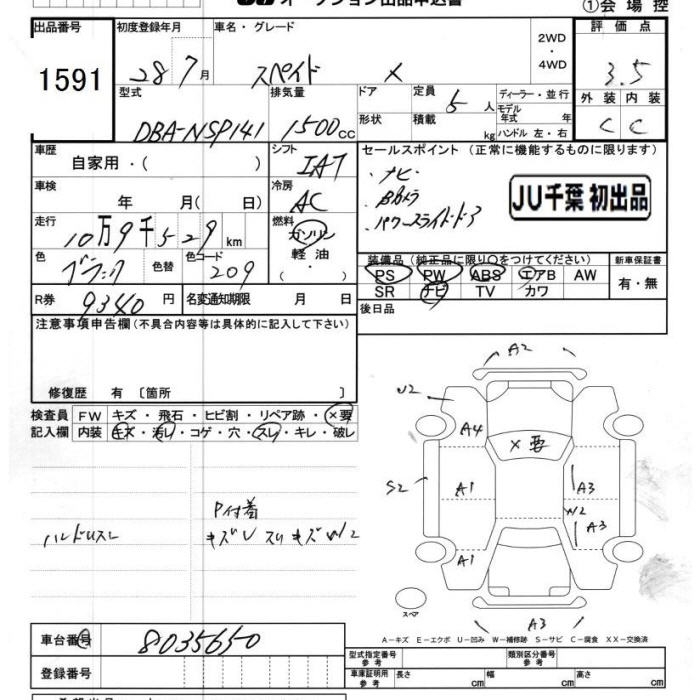 オークション出品申込書
①会場控
出品番号 初度登録年月 車名・グレード 2WD・4WD 評価点
1591 28 7月 スペイド X 3.5
型式 排気量 ドア 定員 5人 ディーラー・並行 外装 内装
DBA-NSP141 1500cc 形状 積載 kg モデル年式 年 ハンドル 左・右 C C
車歴 自家用・( ) シフト IAT セールスポイント (正常に機能するものに限ります)
車検 年 月( 日) 冷房 AC ・ナビ
・Bカメラ
・パワースライドドア
JU千葉 初出品
走行 10万9千529km 燃料 ガソリン 軽油・
色 ブラック 色替 色コード 209
装備品 (純正品に限り○をつけてください) 新車保証書
PS PW ABS エアB AW 有・無
SR ナビ TV カワ
R券 9340円 名変通知期限 月 日 後日品
注意事項申告欄 (不具合内容等は具体的に記入して下さい)
修復歴 有〔箇所 〕
検査員 FW キズ・飛石・ヒビ割・リペア跡・×要
記入欄 内装 キズ・汚レ・コゲ・穴・スレ・キレ・破レ
ハンドルスレ
P付着
キズU スリキズ W2
A2
U2
A4
×要
S2
A1
A3
W2
A3
A1
スペア
A3
A-キズ E-エクボ U-凹み W-補修跡 S-サビ C-腐食 XX-交換済
車台番号 8035650
型式指定番号 参考 類別区分番号 参考
登録番号 車庫証明用 参考 長さ cm 幅 cm 高さ cm